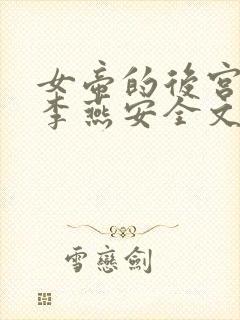 女帝的後宮
李燕安全文
雪戀劍